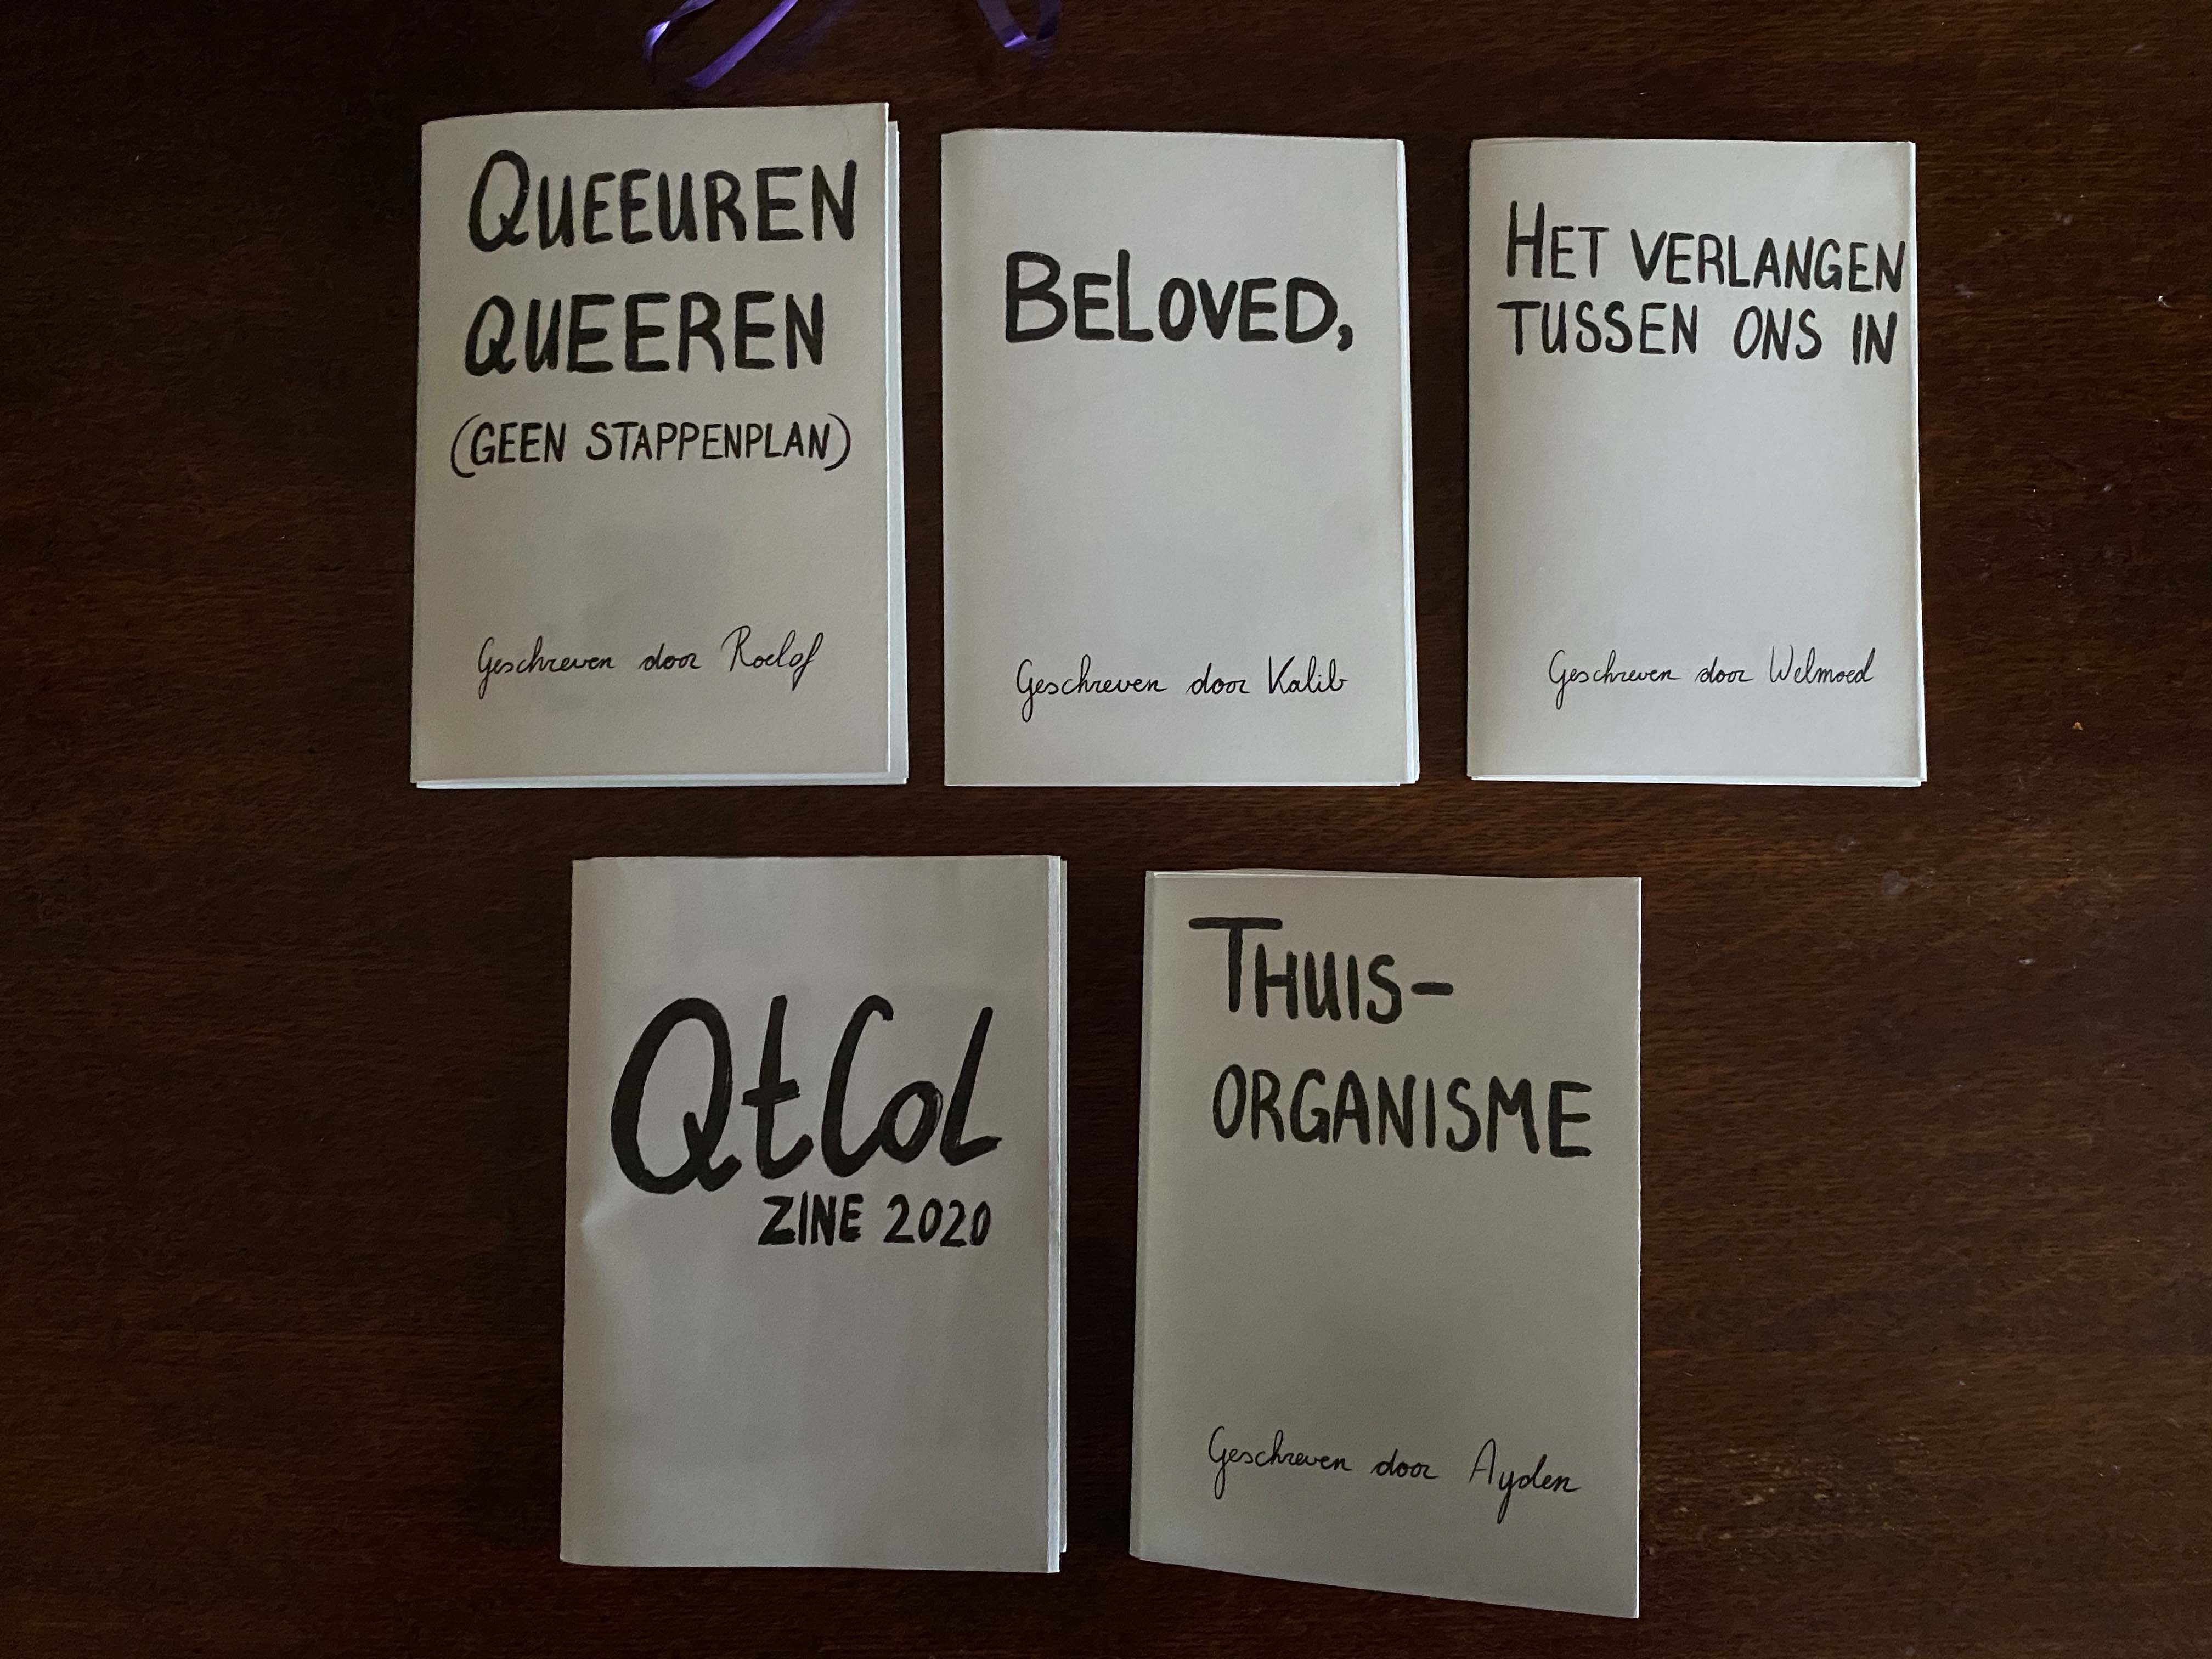 QUEEUREN
QUEEREN
(GEEN STAPPENPLAN)
Geschreven door Roelof
BELOVED,
Geschreven door Kalib
HET VERLANGEN
TUSSEN ONS IN
Geschreven door Welmoed
QtCoL
ZINE 2020
THUIS-
ORGANISME
Geschreven door Ayden